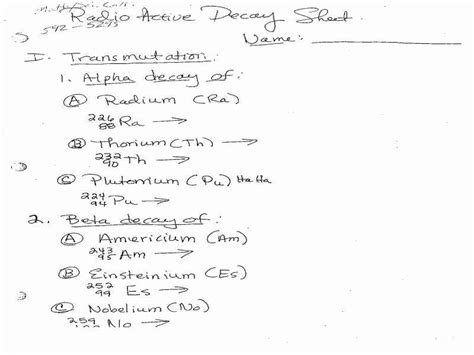 Radio Active Decay Sheet
592-5293
Name:
I. Transmutation:
1. Alpha decay of:
A Radium (Ra)
226 88 Ra →
B Thorium (Th)
232 90 Th →
C Plutonium (Pu) Ha Ha
224 94 Pu →
2. Beta decay of:
A Americium (Am)
243 95 Am →
B Einsteinium (Es)
252 99 Es →
C Nobelium (No)
259 No →